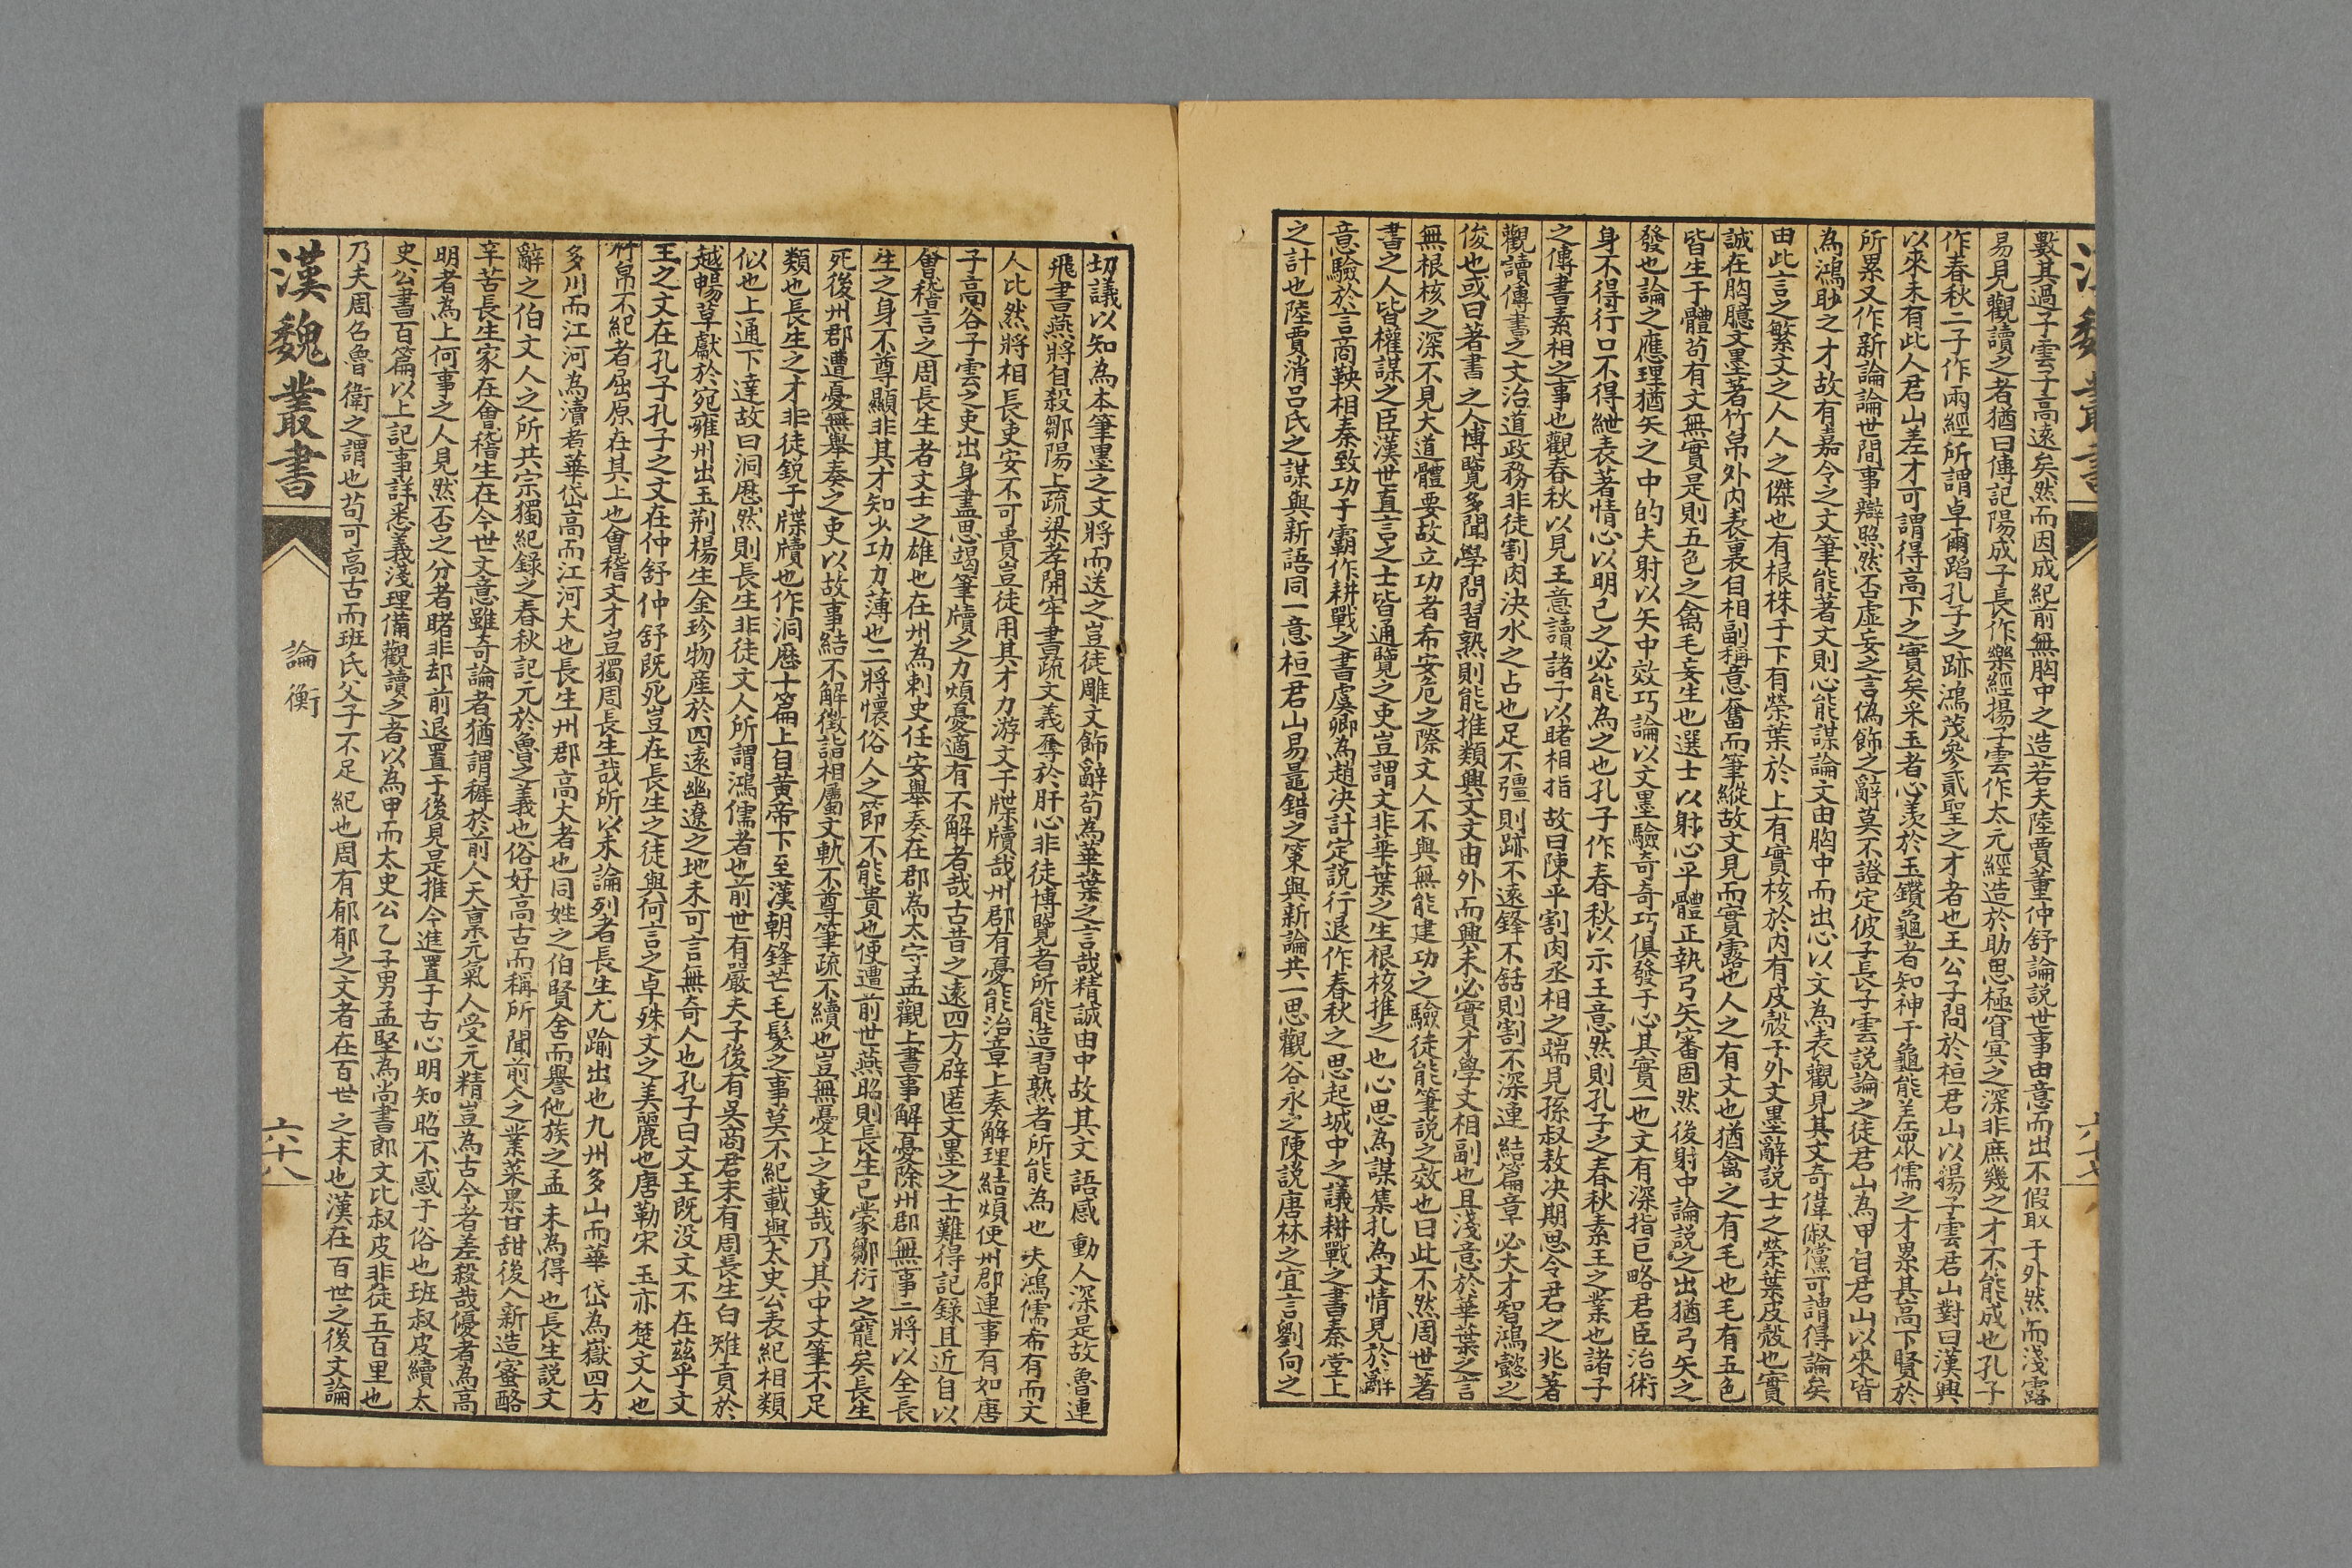 數其過子雲子高遠矣然而因成紀前無胸中之造若夫陸賈董仲舒論說世事由意而出不假取于外然而淺露
易見觀讀之者猶曰傳記陽成子長作樂經揚子雲作太元經造於助思極窅冥之深非庶幾之才不能成也孔子
作春秋二子作兩經所謂卓爾蹈孔子之跡鴻茂參貳聖之才者也王公子問於桓君山以揚子雲君山對曰漢興
以來未有此人君山差才可謂得高下之實矣采玉者心羨於玉鑽龜者知神于龜能差眾儒之才累其高下賢於
所累又作新論論世間事辯照然否虛妄之言偽飾之辭莫不證定彼子長子雲說論之徒君山為甲自君山以來皆
為鴻眇之才故有嘉令之文筆能著文則心能謀論文由胸中而出心以文為表觀見其文奇偉俶儻可謂得論矣
由此言之繁文之人人之傑也有根株于下有榮葉於上有實核於內有皮殼于外文墨辭說士之榮葉皮殼也實
誠在胸臆文墨著竹帛外內表裏自相副稱意奮而筆縱故文見而實露也人之有文也猶禽之有毛也毛有五色
皆生于體苟有文無實是則五色之禽毛妄生也選士以射心平體正執弓矢審固然後射中論說之出猶弓矢之
發也論之應理猶矢之中的夫射以矢中效巧論以文墨驗奇奇巧俱發于心其實一也文有深指巨略君臣治術
身不得行口不得紲表著情心以明己之必能為之也孔子作春秋以示王意然則孔子之春秋素王之業也諸子
之傳書素相之事也觀春秋以見王意讀諸子以睹相指故曰陳平割肉丞相之端見孫叔敖決期思令君之兆著
觀讀傳書之文治道政務非徒割肉決水之占也足不彊則跡不遠鋒不銛則割不深連結篇章必大才智鴻懿之
俊也或曰著書之人博覽多聞學問習熟則能推類興文文由外而興未必實才學文相副也且淺意於華葉之言
無根核之深不見大道體要故立功者希安危之際文人不與無能建功之驗徒能筆說之效也曰此不然周世著
書之人皆權謀之臣漢世直言之士皆通覽之吏豈謂文非華葉之生根核推之也心思為謀集札為文情見於辭
意驗於言商鞅相秦致功于霸作耕戰之書虞卿為趙決計定說行退作春秋之思起城中之議耕戰之書秦堂上
之計也陸賈消呂氏之謀與新語同一意桓君山易鼂錯之策與新論共一思觀谷永之陳說唐林之宜言劉向之
切議以知為本筆墨之文將而送之豈徒雕文飾辭苟為華葉之言哉精誠由中故其文語感動人深是故魯連
飛書燕將自殺鄒陽上疏梁孝開牢書疏文義奪於肝心非徒博覽者所能造習熟者所能為也夫鴻儒希有而文
人比然將相長吏安不可貴豈徒用其才力游文于牒牘哉州郡有憂能治章上奏解理結煩使州郡連事有如唐
子高谷子雲之吏出身盡思竭筆牘之力煩憂適有不解者哉古昔之遠四方辟匿文墨之士難得記錄且近自以
會稽言之周長生者文士之雄也在州為刺史任安舉奏在郡為太守孟觀上書事解憂除州郡無事二將以全長
生之身不尊顯非其才知少功力薄也二將懷俗人之節不能貴也使遭前世燕昭則長生已蒙鄒衍之寵矣長生
死後州郡遭憂無舉奏之吏以故事結不解徵詣相屬文軌不尊筆疏不續也豈無憂上之吏哉乃其中文筆不足
類也長生之才非徒銳于牒牘也作洞歷十篇上自黃帝下至漢朝鋒芒毛髮之事莫不紀載與太史公表紀相類
似也上通下達故曰洞歷然則長生非徒文人所謂鴻儒者也前世有嚴夫子後有吳商君末有周長生白雉貢於
越暢草獻於宛雍州出玉荊楊生金珍物產於四遠幽遼之地未可言無奇人也孔子曰文王既没文不在茲乎文
王之文在孔子孔子之文在仲舒仲舒既死豈在長生之徒與何言之卓殊文之美麗也唐勒宋玉亦楚文人也
竹帛不紀者屈原在其上也會稽文才豈獨周長生哉所以未論列者長生尤踰出也九州多山而華岱為嶽四方
多川而江河為瀆者華岱高而江河大也長生州郡高大者也同姓之伯賢舍而譽他族之孟未為得也長生說文
辭之伯文人之所共宗獨紀錄之春秋記元於魯之義也俗好高古而稱所聞前人之業菜果甘甜後人新造蜜酪
辛苦長生家在會稽生在今世文意雖奇論者猶謂稺於前人天稟元氣人受元精豈為古今者差殺哉優者為高
明者為上何事之人見然否之分者睹非却前退置于後見是推今進置于古心明知昭不惑于俗也班叔皮續太
史公書百篇以上記事詳悉義淺理備觀讀之者以為甲而太史公乙子男孟堅為尚書郎文比叔皮非徒五百里也
乃夫周召魯衛之謂也苟可高古而班氏父子不足紀也周有郁郁之文者在百世之末也漢在百世之後文論
漢魏叢書
論衡
六十八